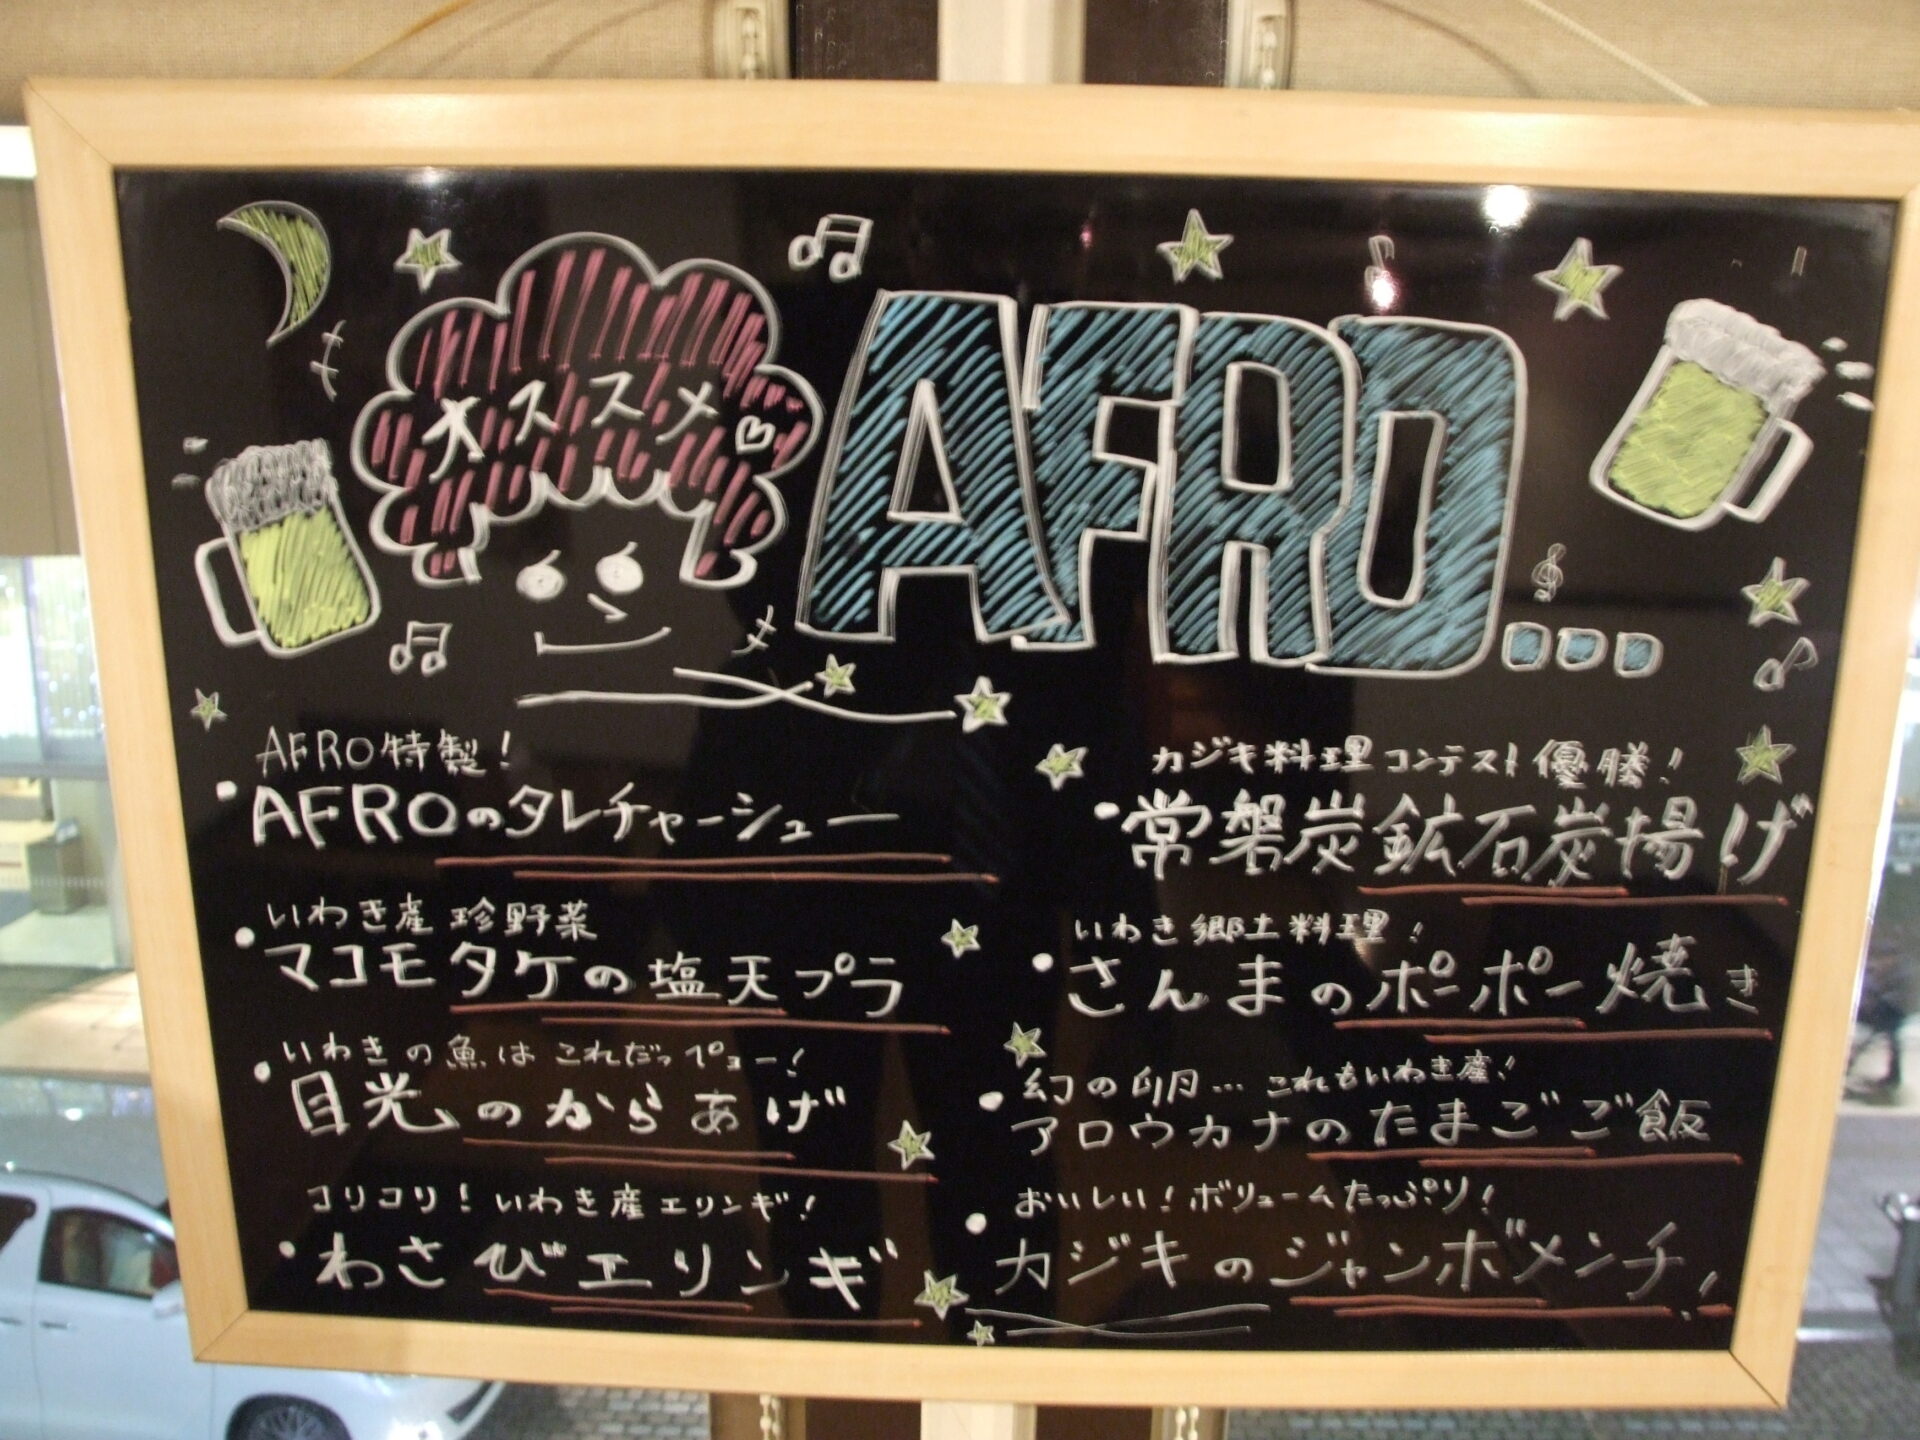 オススメ♡
AFRO...
AFRO特製!
・AFROのタレチャーシュー
いわき産 珍野菜
・マコモタケの塩天プラ
いわきの魚は これだっぺョー!
・目光のからあげ
コリコリ! いわき産エリンギ!
・わさびエリンギ
カジキ料理コンテスト優勝!
・常磐炭鉱石炭揚げ
いわき郷土料理!
・さんまのポーポー焼き
幻の卵… これもいわき産!
・アロウカナのたまごご飯
おいしい! ボリュームたっぷり!
・カジキのジャンボメンチ!